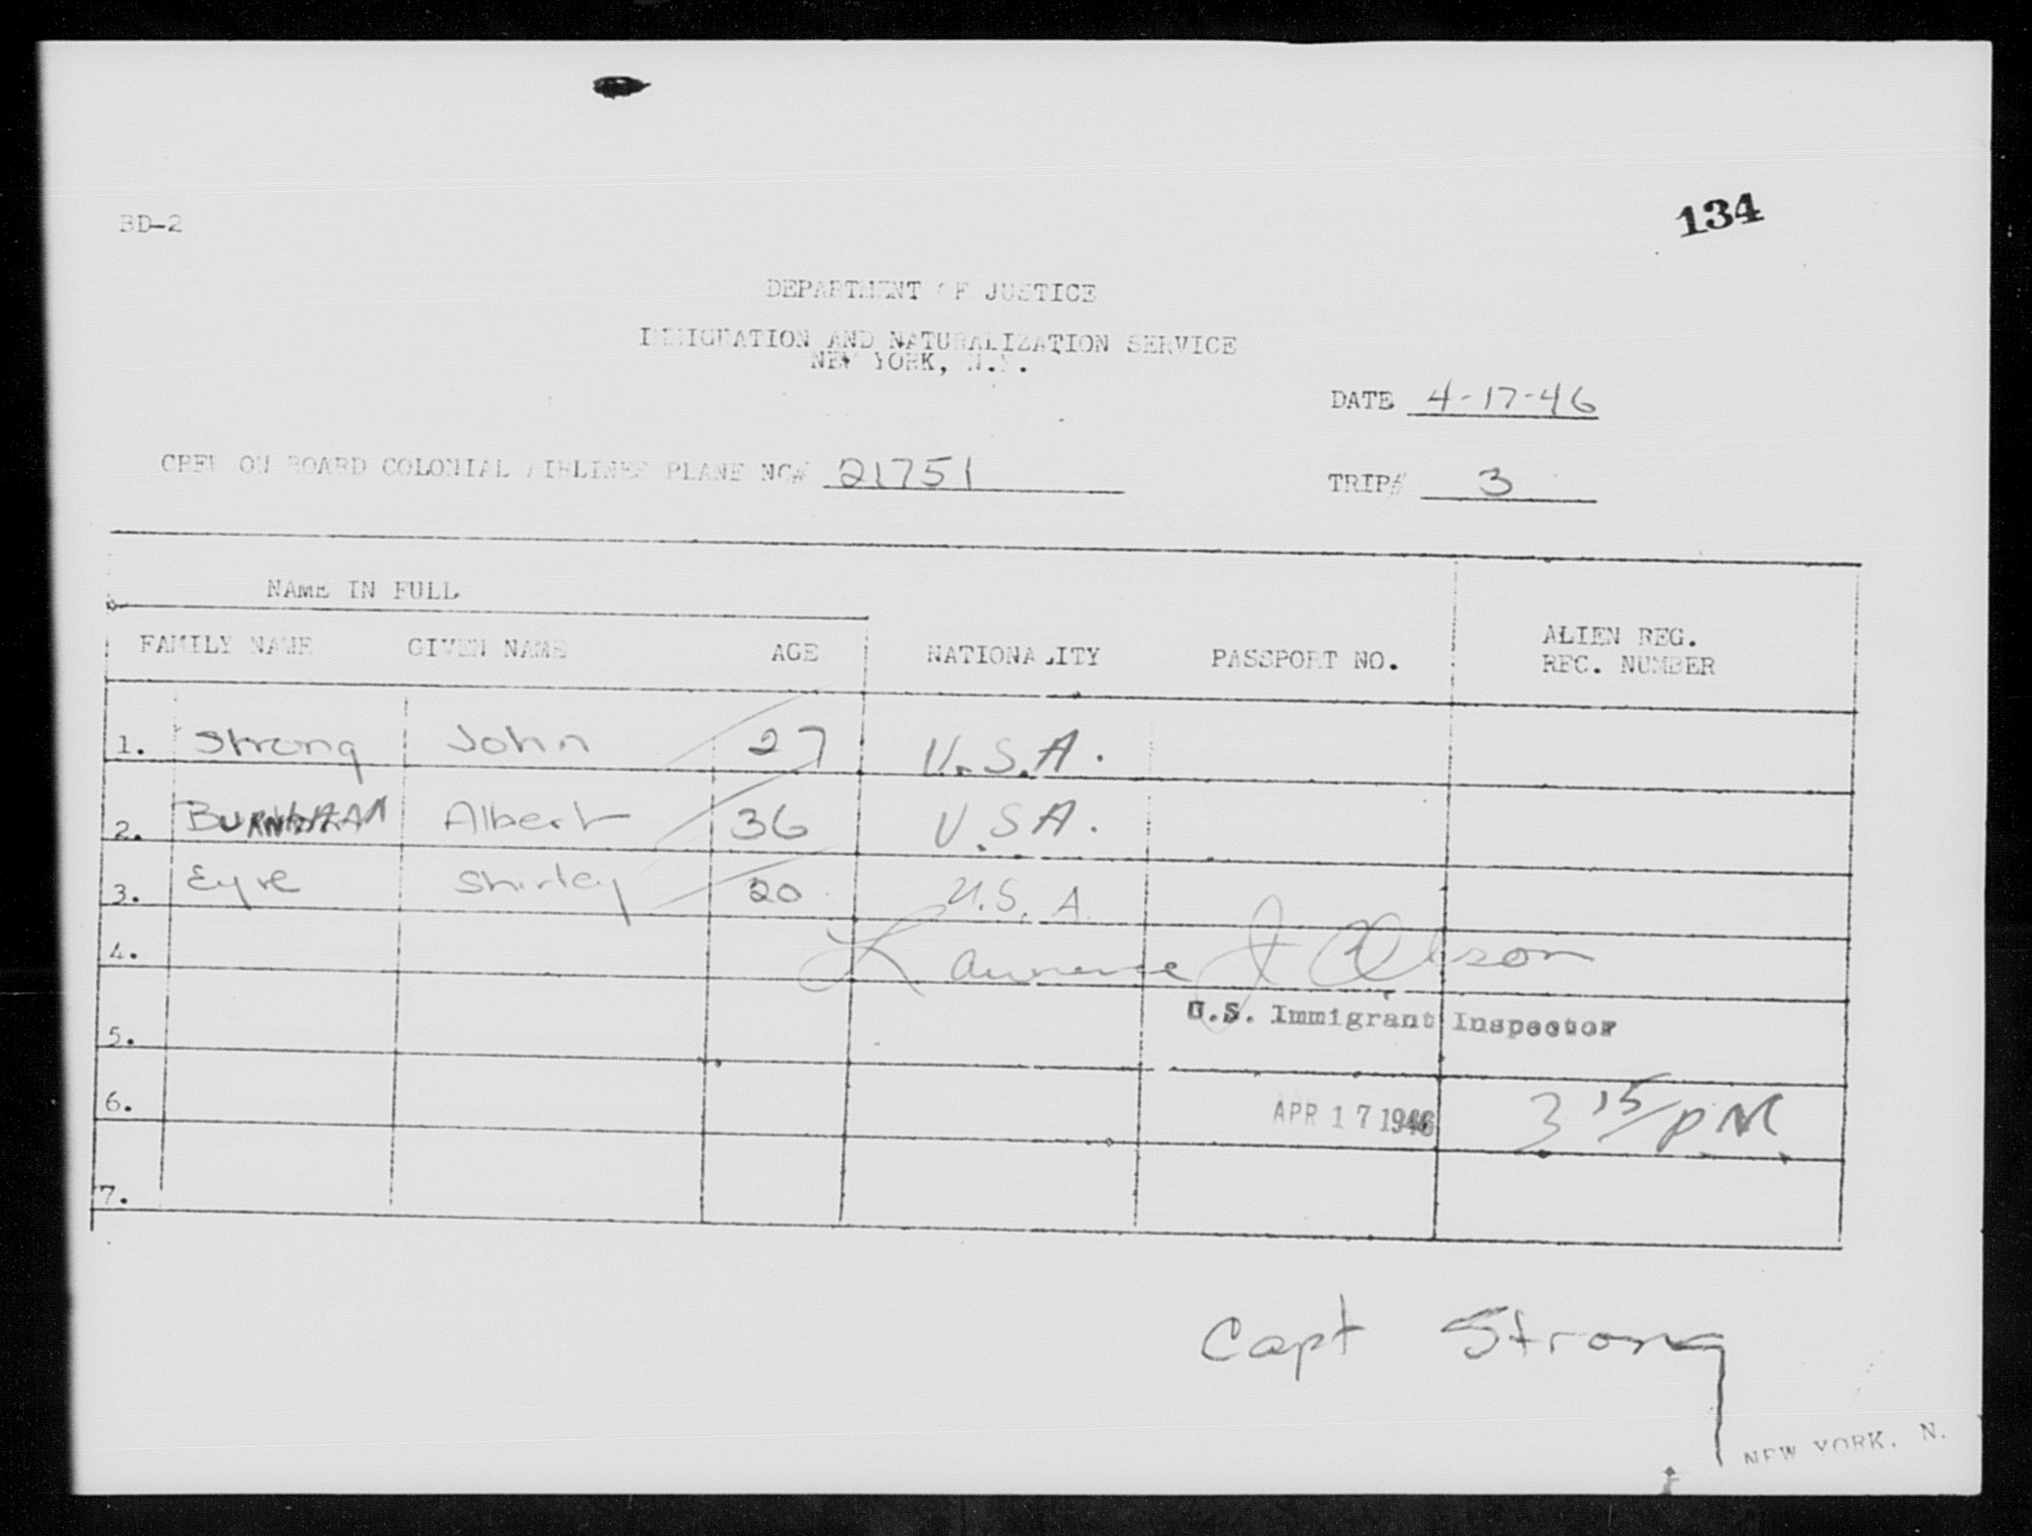 BD-2
134
DEPARTMENT OF JUSTICE
IMMIGRATION AND NATURALIZATION SERVICE
NEW YORK, N.Y.
DATE 4-17-46
CREW ON BOARD COLONIAL AIRLINES PLANE NO# 21751
TRIP# 3
NAME IN FULL
FAMILY NAME GIVEN NAME AGE NATIONALITY PASSPORT NO. ALIEN REG. REC. NUMBER
1. Strong John 27 U.S.A.
2. BURNHAM Albert 36 U.S.A.
3. Eyre Shirley 20 U.S.A.
4.
Lawrence J Olson
U.S. Immigrant Inspector
5.
6. APR 17 1946 3 15/PM
7.
Capt Strong
NEW YORK, N.